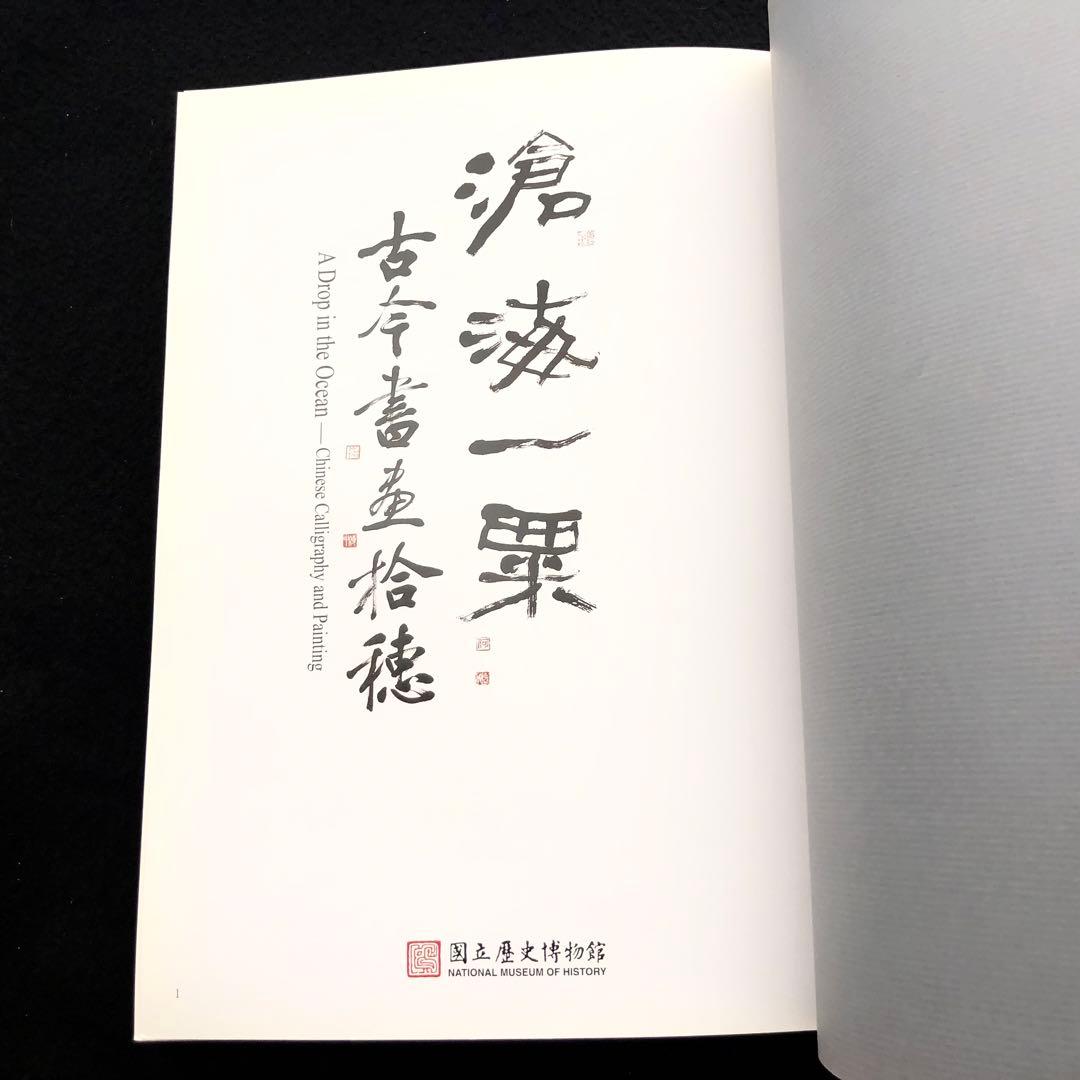 滄海一粟
古今書畫拾穗
A Drop in the Ocean — Chinese Calligraphy and Painting
國立歷史博物館
NATIONAL MUSEUM OF HISTORY
1